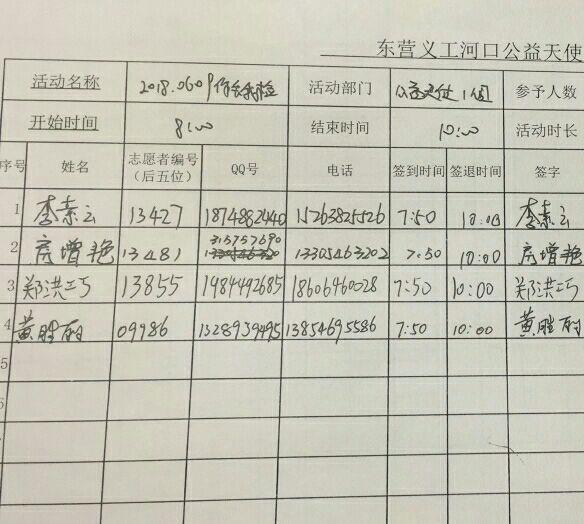 东营义工河口公益天使
活动名称 2018.0609 活动部门 公益天使1组 参予人数
开始时间 8:00 结束时间 10:00 活动时长
序号 姓名 志愿者编号（后五位） QQ号 电话 签到时间 签退时间 签字
1 李素云 13427 1874882440 15263825526 7:50 10:00 李素云
2 房增艳 13481 315757690 13305463202 7:50 10:00 房增艳
3 郑洪巧 13855 1484492685 18606460028 7:50 10:00 郑洪巧
4 黄胜丽 09986 1328959495 13854695586 7:50 10:00 黄胜丽
5
6